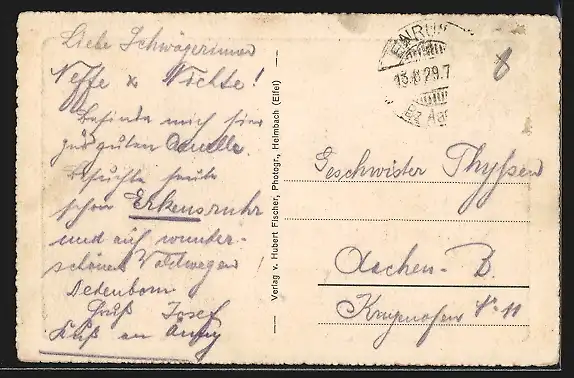 Liebe Schwägerin und
Neffe & Nichte!
Befinde mich hier
zur guten Quelle.
Besuchte heute
schon Erkensruhr
und auf wunder-
schönen Waldwegen
Dedenborn
Gruß Josef
Kuß an Anny
Verlag v. Hubert Fischer, Photogr., Heimbach (Eifel)
EINRUHR
13.8.29.7
Bz Aac
8
Geschwister Thyssen
Aachen-B.
11